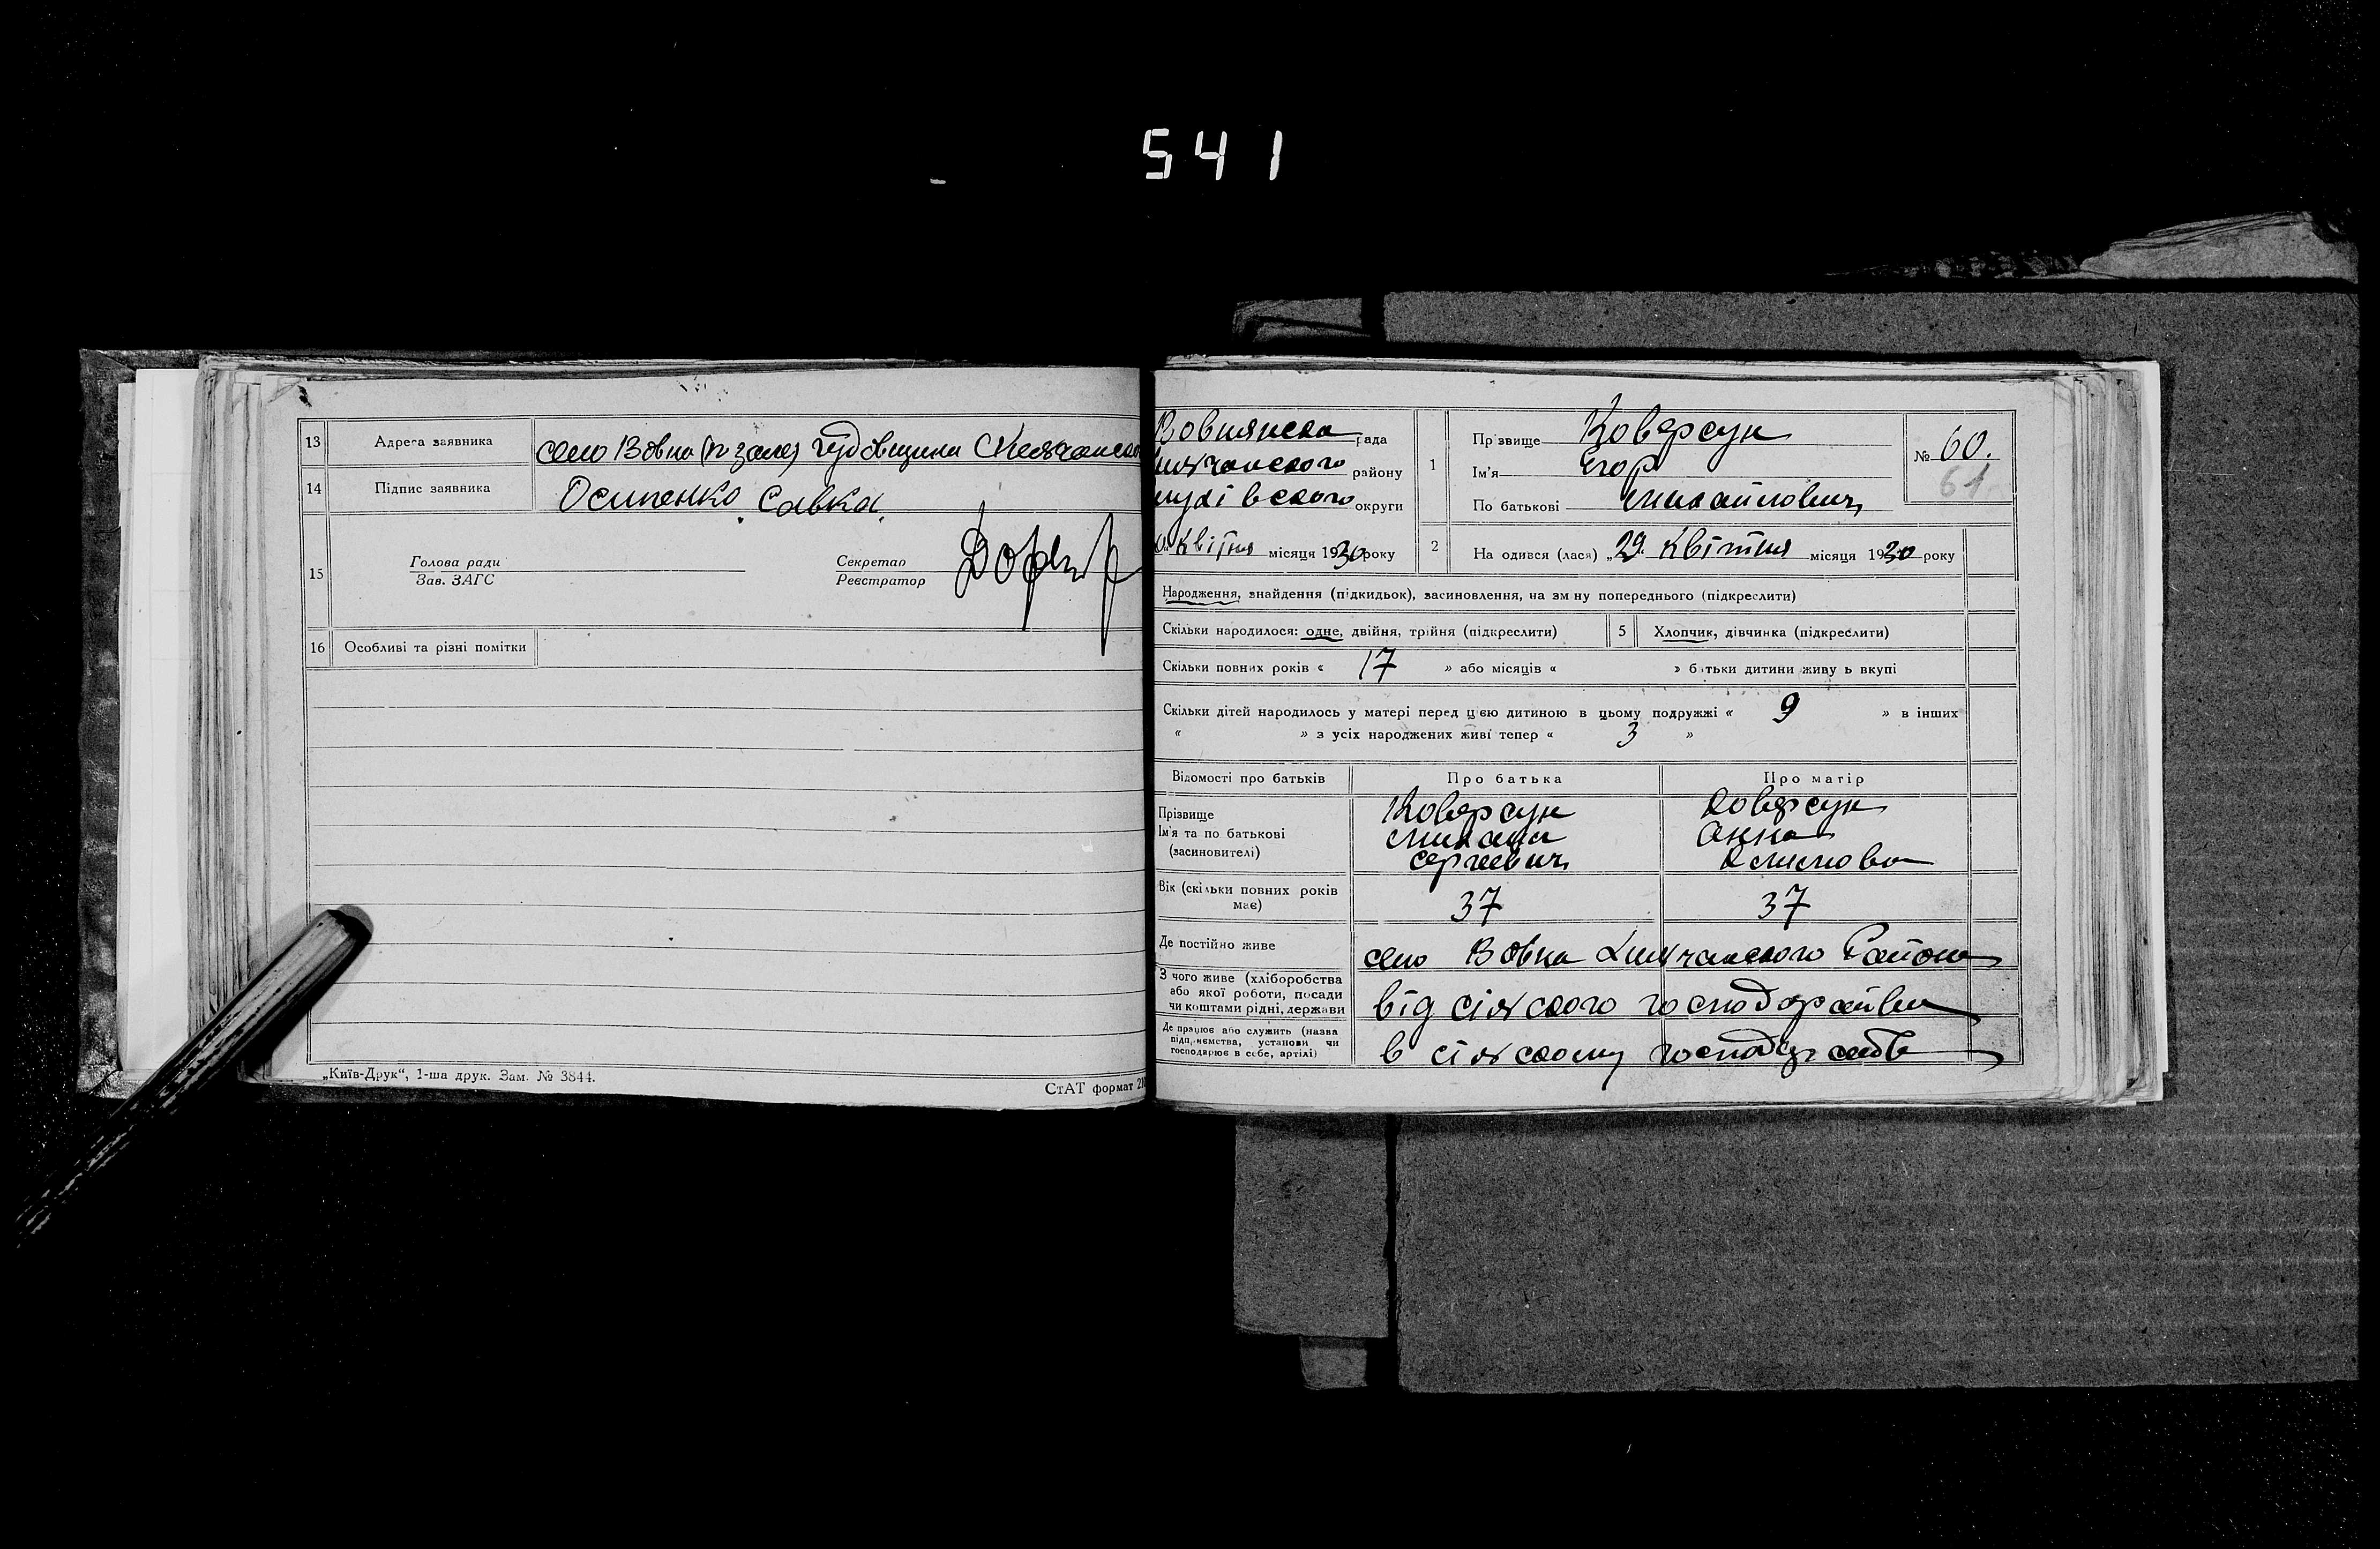 541
13 Адреса заявника село Вовна (п зале) Гудовщина
14 Підпис заявника Осипенко Савка.
15 Голова ради
Зав. ЗАГС
Секретар
Реєстратор
16 Особливі та різні помітки
„Київ-Друк“, 1-ша друк. Зам. № 3844.
СтАТ формат 210
Вовнянска рада
району
округи
Квітня місяця 1930 року
1 Прізвище Коверсун
Ім'я Єгор
По батькові Михайлович
№ 60.
61
2 На одився (лася) „29. Квітня місяця 1930 року
Народження, знайдення (підкидьок), засиновлення, на зм ну попереднього (підкреслити)
Скільки народилося: одне, двійня, трійня (підкреслити) 5 Хлопчик, дівчинка (підкреслити)
Скільки повних років « 17 » або місяців « » батьки дитини живу ь вкупі
Скільки дітей народилось у матері перед цією дитиною в цьому подружжі « 9 » в інших
« » з усіх народжених живі тепер « 3 »
Відомості про батьків Про батька Про матір
Прізвище Коверсун Коверсун
Ім'я та по батькові Михаил Анна
(засиновителі) Сергиевич
Вік (скільки повних років має) 37 37
Де постійно живе село Вовна Района
З чого живе (хліборобства
або якої роботи, посади
чи коштами рідні, держави від сільского господарства
Де працює або служить (назва
підприємства, установи чи
господарює в себе, артілі) в сільскому господарстві